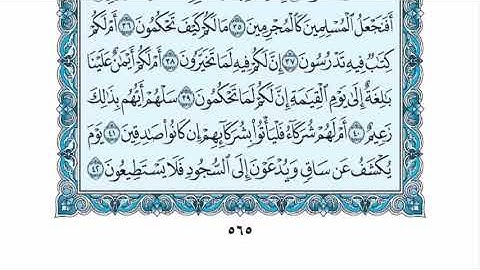 أَفَنَجْعَلُ ٱلْمُسْلِمِينَ كَٱلْمُجْرِمِينَ ٣٥ مَا لَكُمْ كَيْفَ تَحْكُمُونَ ٣٦ أَمْ لَكُمْ
كِتَٰبٌ فِيهِ تَدْرُسُونَ ٣٧ إِنَّ لَكُمْ فِيهِ لَمَا تَخَيَّرُونَ ٣٨ أَمْ لَكُمْ أَيْمَٰنٌ عَلَيْنَا
بَٰلِغَةٌ إِلَىٰ يَوْمِ ٱلْقِيَٰمَةِ إِنَّ لَكُمْ لَمَا تَحْكُمُونَ ٣٩ سَلْهُمْ أَيُّهُم بِذَٰلِكَ
زَعِيمٌ ٤٠ أَمْ لَهُمْ شُرَكَآءُ فَلْيَأْتُوا۟ بِشُرَكَآئِهِمْ إِن كَانُوا۟ صَٰدِقِينَ ٤١ يَوْمَ
يُكْشَفُ عَن سَاقٍ وَيُدْعَوْنَ إِلَى ٱلسُّجُودِ فَلَا يَسْتَطِيعُونَ ٤٢
٥٦٥